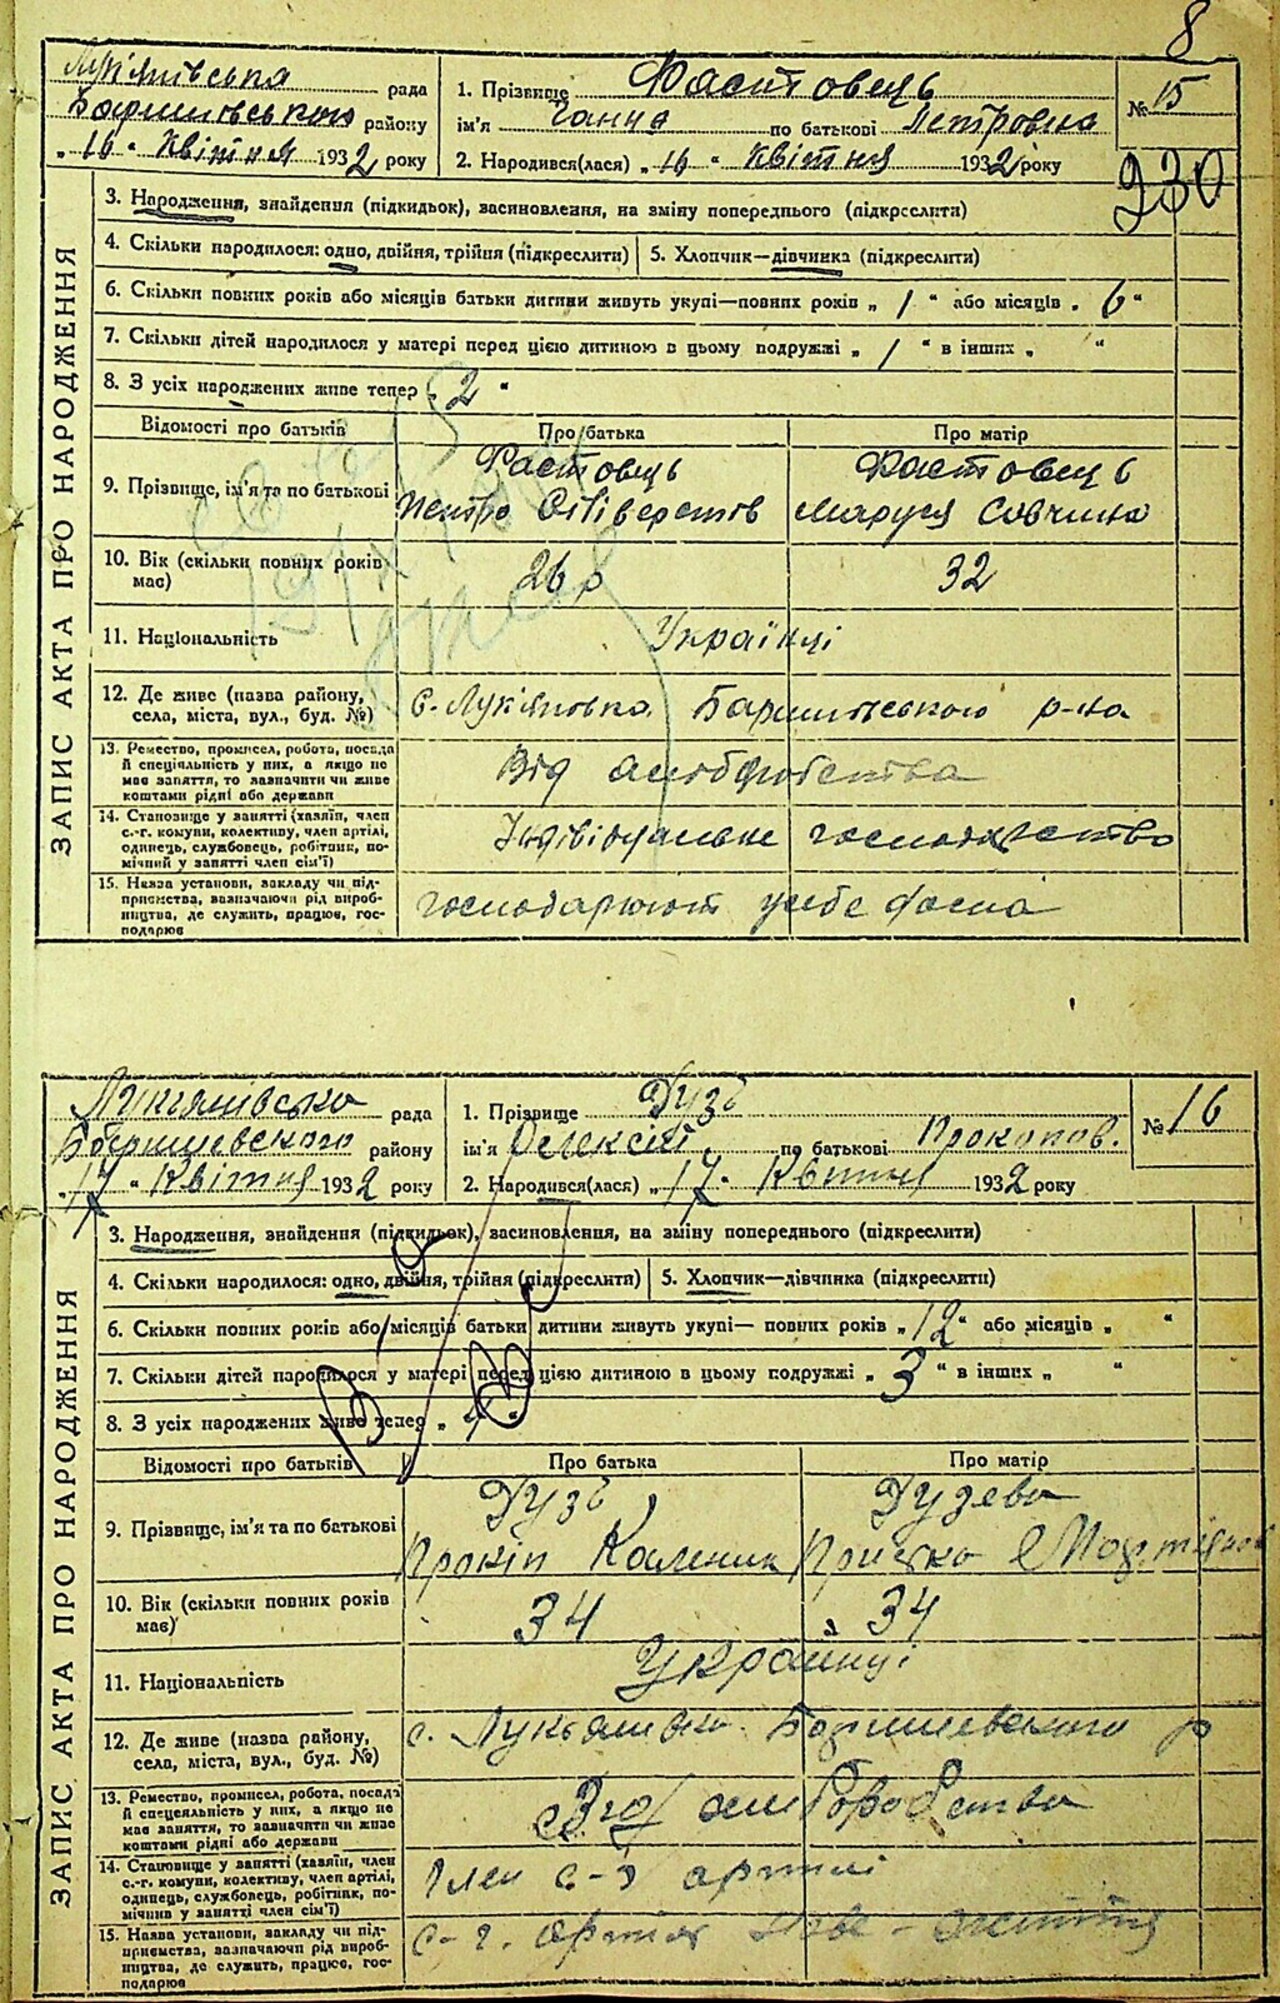 8
Лук'янівська рада
Баришівського району
„ 16 " Квітня 1932 року
1. Прізвище Фастовець
ім'я Ганна по батькові Петровна
2. Народився(лася) „ 16 " квітня 1932 року
№ 15
230
ЗАПИС АКТА ПРО НАРОДЖЕННЯ
3. Народження, знайдення (підкидьок), засиновлення, на зміну попереднього (підкреслити)
4. Скільки народилося: одно, двійня, трійня (підкреслити) 5. Хлопчик—дівчинка (підкреслити)
6. Скільки повних років або місяців батьки дитини живуть укупі—повних років „ 1 " або місяців „ 6 "
7. Скільки дітей народилося у матері перед цією дитиною в цьому подружжі „ 1 " в інших „ "
8. З усіх народжених живе тепер „ 2 "
Відомості про батьків Про батька Про матір
9. Прізвище, ім'я та по батькові
Фастовець
Петро Силіверстів
Фастовець
Маруся Савчина
10. Вік (скільки повних років має) 26 р 32
11. Національність Українці
12. Де живе (назва району, села, міста, вул., буд. №) с. Лук'яновка Баришівського р-на
13. Ремество, промисел, робота, посада
й спеціяльність у них, а якщо не
має заняття, то зазначити чи живе
коштами рідні або держави
Від
14. Становище у занятті (хазяїн, член
с.-г. комуни, колективу, член артілі,
одинець, службовець, робітник, по-
мічний у занятті член сім'ї)
Індівідуальне господарство
15. Назва установи, закладу чи під-
приємства, зазначаючи рід вироб-
ництва, де служить, працює, гос-
подарює
господарюют
Лукянівська рада
Баришевського району
„ 17 " Квітня 1932 року
1. Прізвище Гузь
ім'я Олексій по батькові Прокопов.
2. Народився(лася) „ 17 " Квітня 1932 року
№ 16
ЗАПИС АКТА ПРО НАРОДЖЕННЯ
3. Народження, знайдення (підкидьок), засиновлення, на зміну попереднього (підкреслити)
4. Скільки народилося: одно, двійня, трійня (підкреслити) 5. Хлопчик—дівчинка (підкреслити)
6. Скільки повних років або місяців батьки дитини живуть укупі— повних років „ 12 " або місяців „ "
7. Скільки дітей народилося у матері перед цією дитиною в цьому подружжі „ 3 " в інших „ "
8. З усіх народжених живе тепер „ 4 "
Відомості про батьків Про батька Про матір
9. Прізвище, ім'я та по батькові
Гузь
Прокіп Каленик
Гузева
Пріська
10. Вік (скільки повних років має) 34 34
11. Національність Українці
12. Де живе (назва району, села, міста, вул., буд. №) с. Лукьянівка Баришевского р
13. Ремество, промисел, робота, посада
й спецеяльність у них, а якщо не
має заняття, то зазначити чи живе
коштами рідні або держави
Від хліборобства
14. Становище у занятті (хазяїн, член
с.-г. комуни, колективу, член артілі,
одинець, службовець, робітник, по-
мічний у занятті член сім'ї)
Член с-г артілі
15. Назва установи, закладу чи під-
приємства, зазначаючи рід вироб-
ництва, де служить, працює, гос-
подарює
с-г. артіль Нове-життя